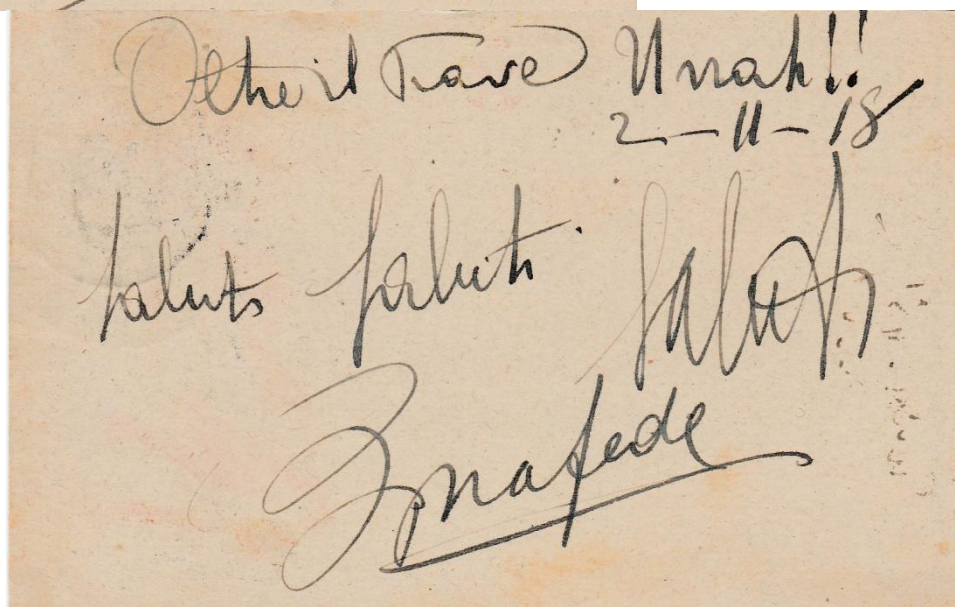 Oltre il Piave Urrah!!
2-11-18
Saluti Saluti Saluti
Bonafede